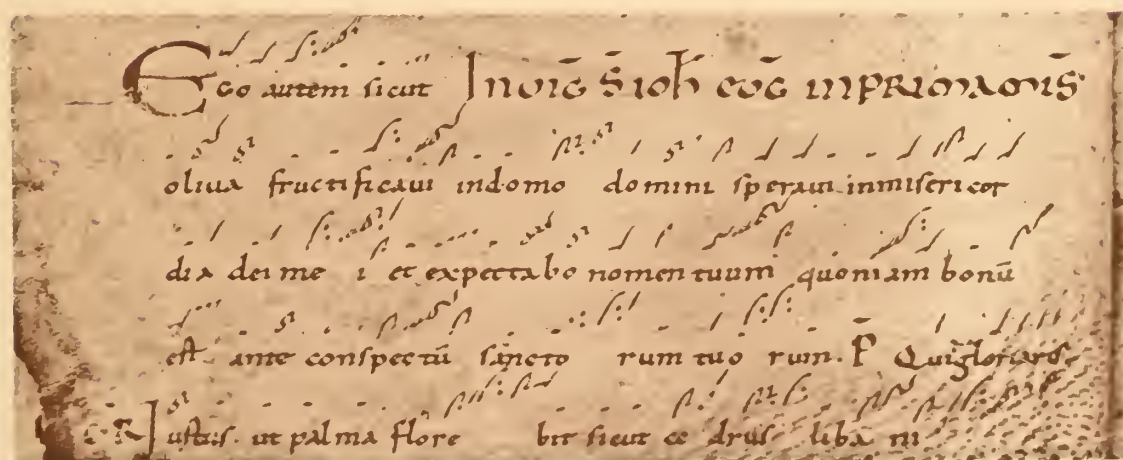 Ego autem sicut In viḡ s̄ ioh̄ eūḡ in primā mis̄
oliva fructificavi indomo domini speravi inmisericor
dia dei me i et expectabo nomen tuum quoniam bonū
est ante conspectū sancto rum tuo rum. P̄ Quid gloriaris
G R Iustus ut palma flore bit sicut ce drus liba ni